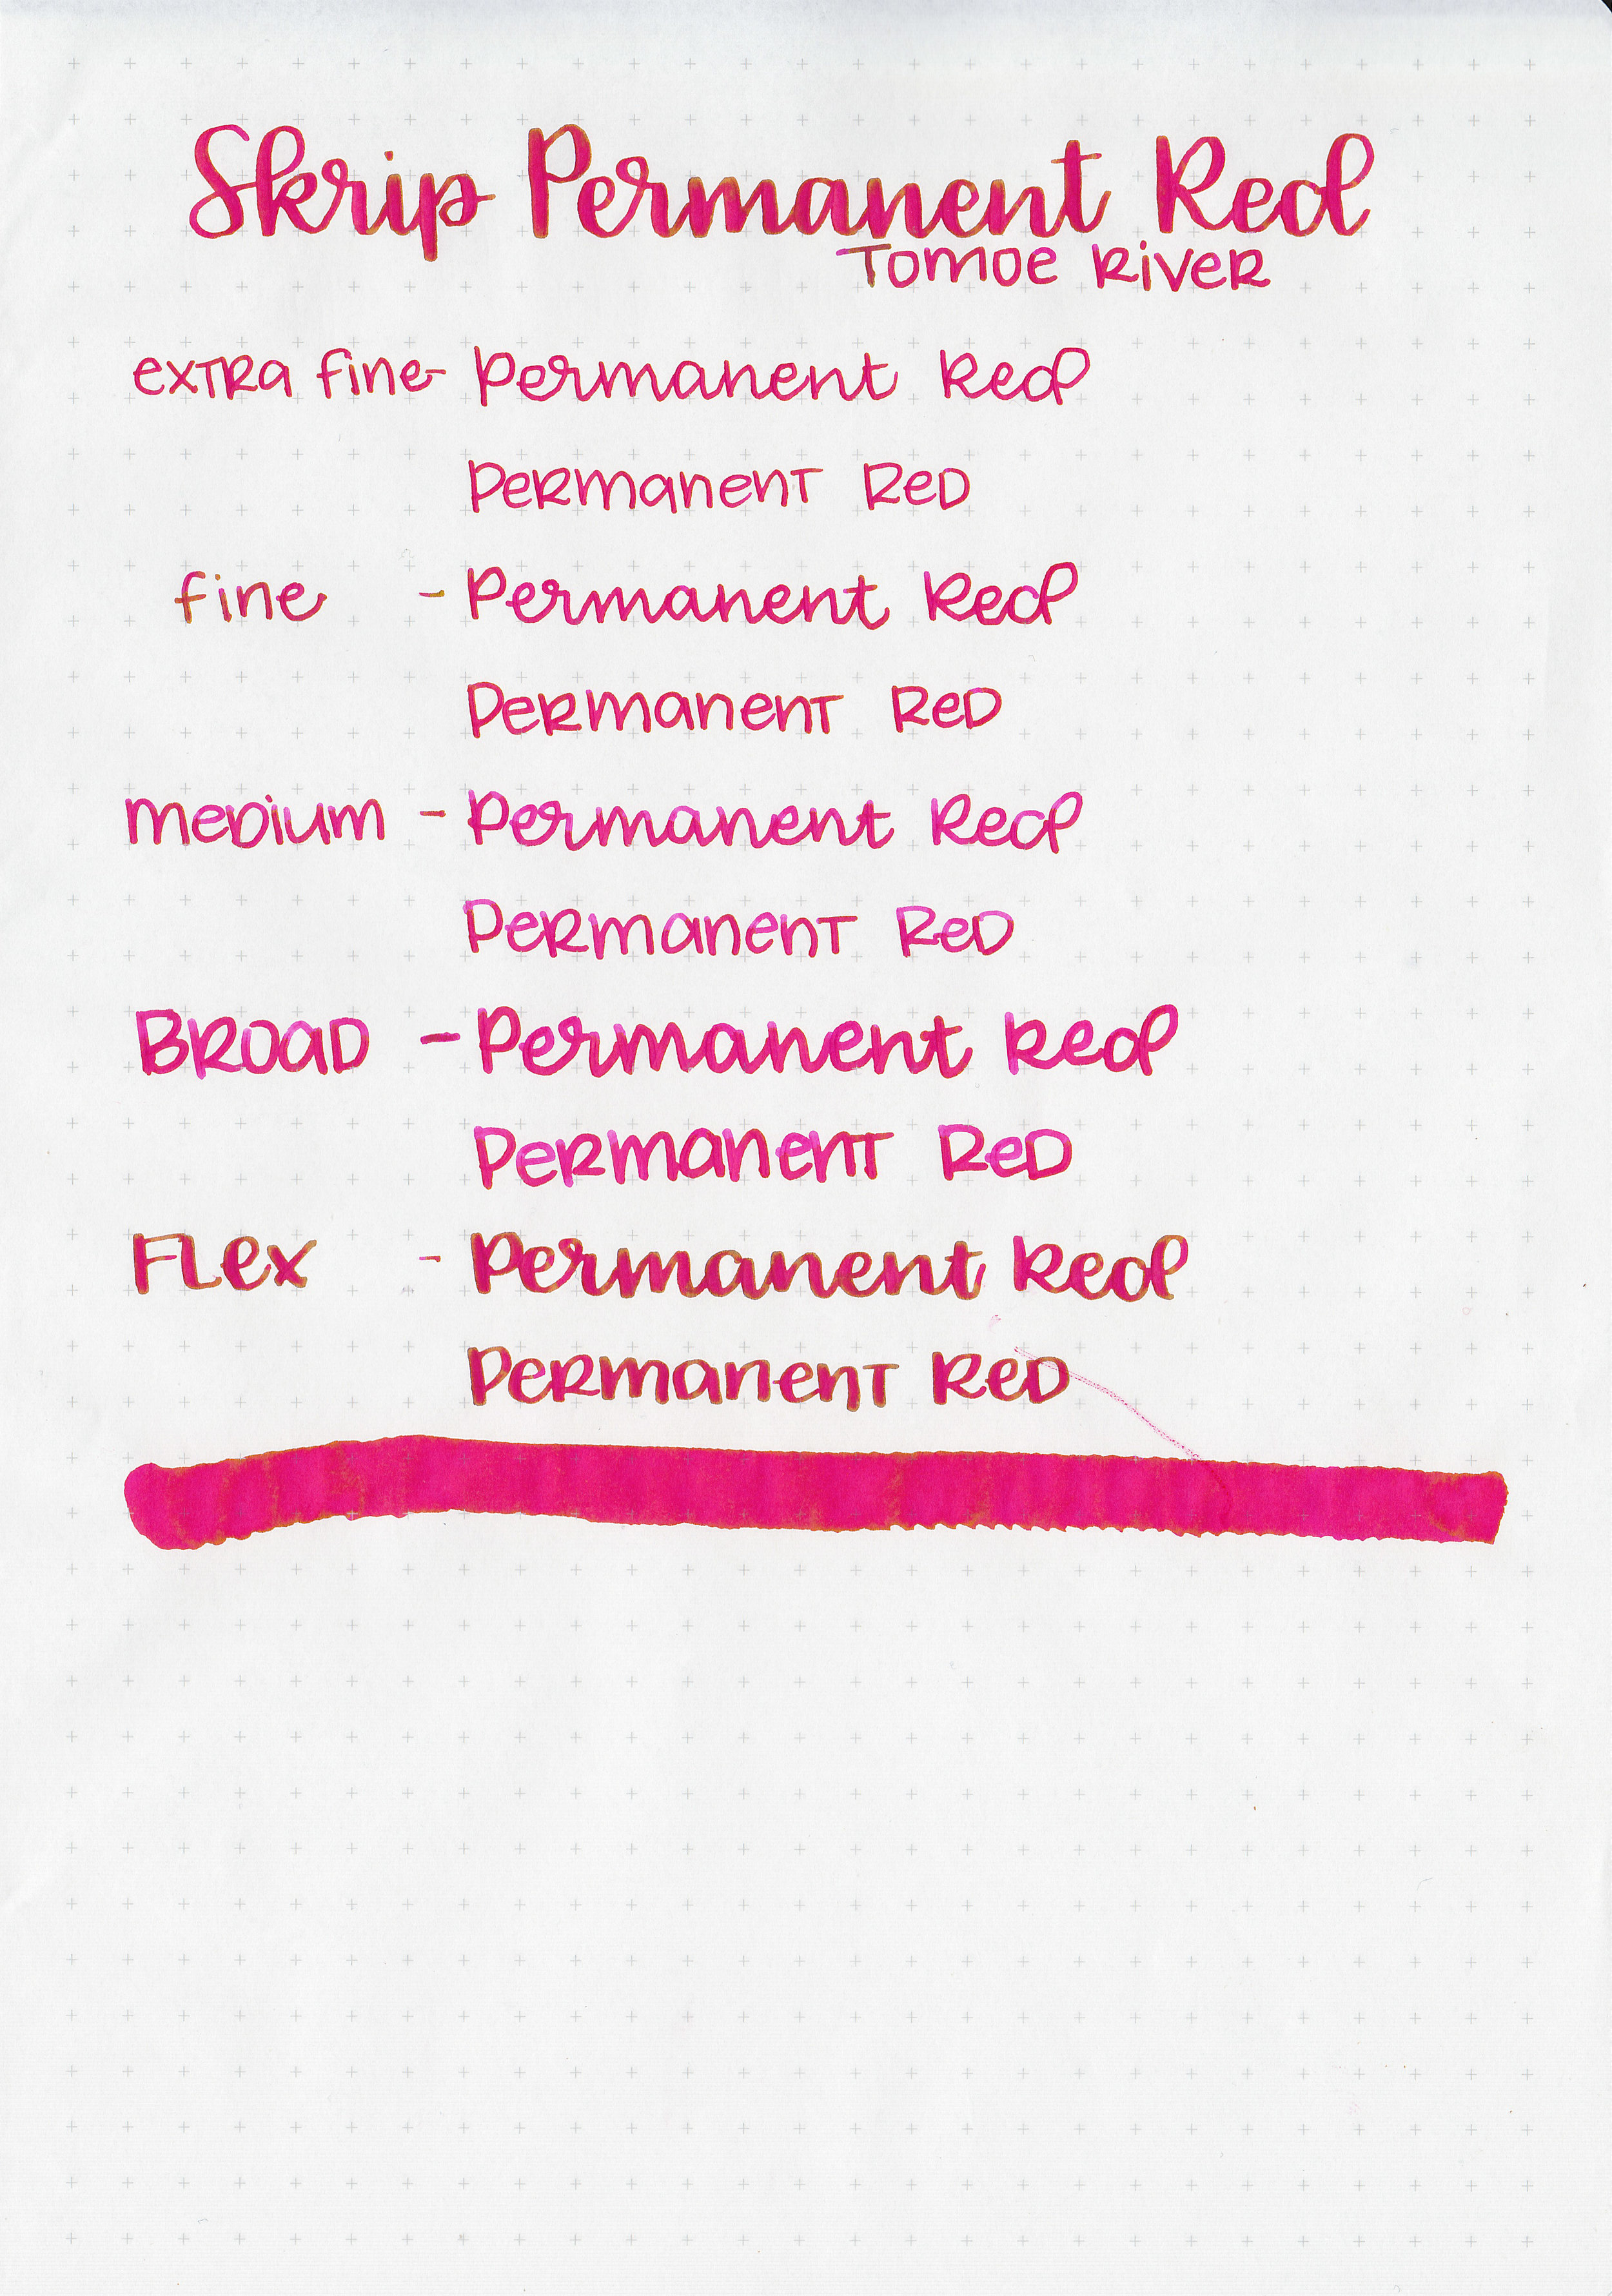 Skrip Permanent Red
Tomoe River
extra fine- Permanent Red
Permanent Red
fine - Permanent Red
Permanent Red
medium - Permanent Red
Permanent Red
Broad - Permanent Red
Permanent Red
Flex - Permanent Red
Permanent Red